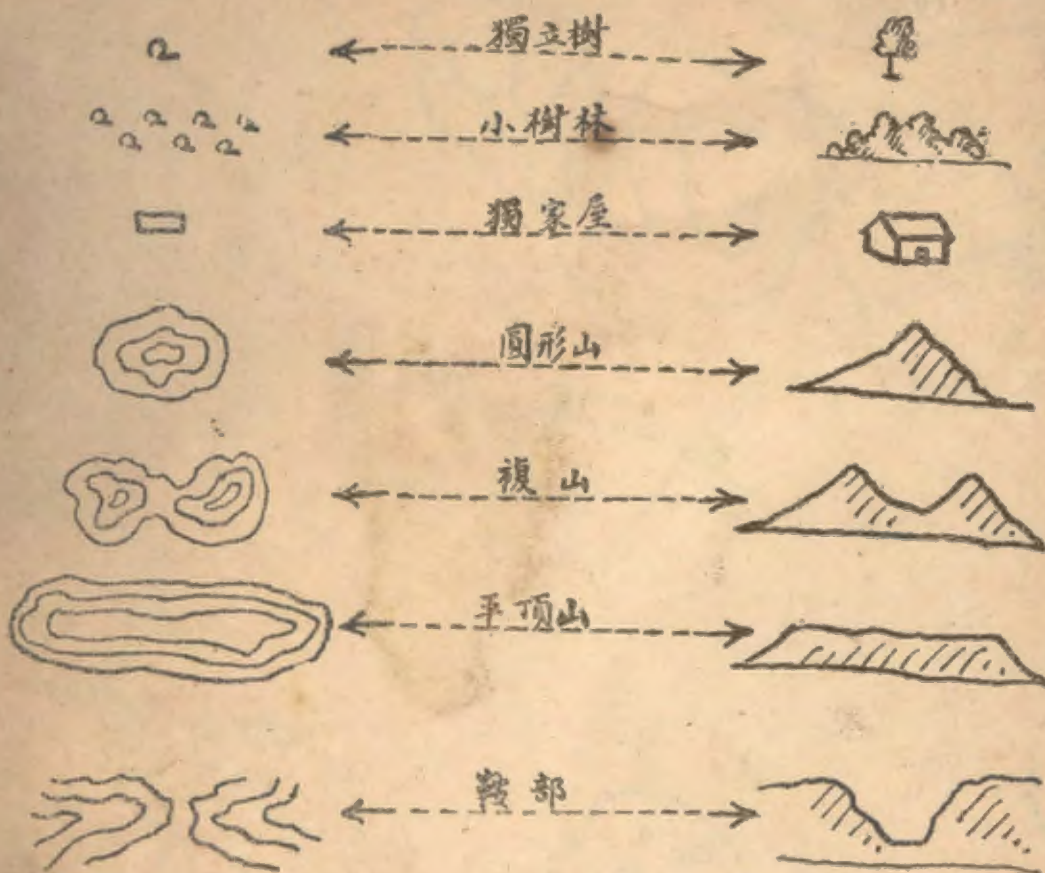 獨立樹
小樹林
獨家屋
圓形山
複山
平頂山
鞍部